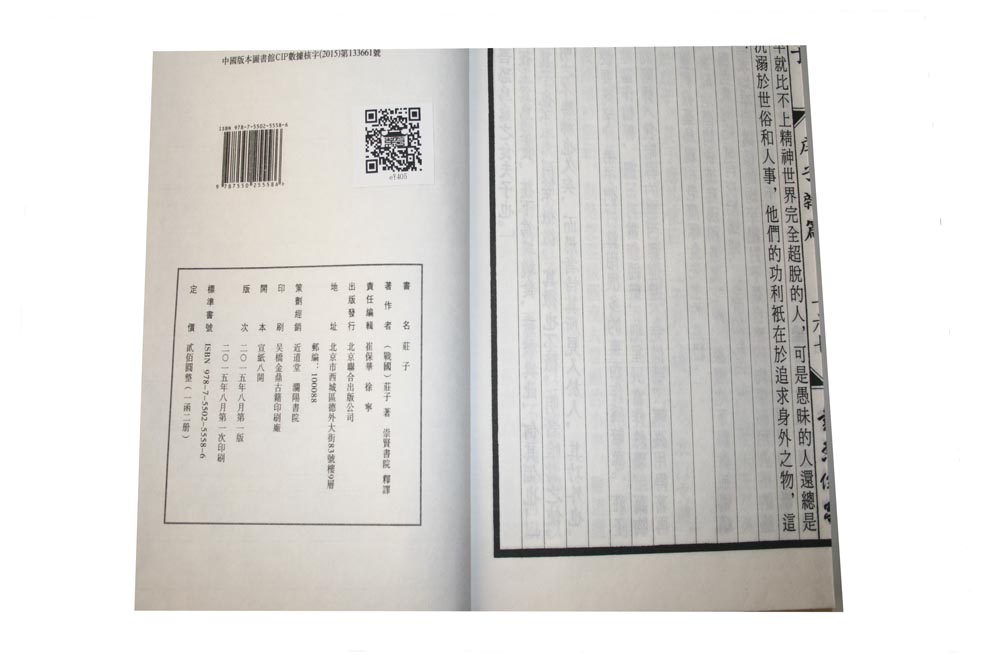 中國版本圖書館CIP數據核字(2015)第133661號
ISBN 978-7-5502-5558-6
9 787550 255586
書名 莊子
著作者 (戰國)莊子 著 崇賢書院 釋譯
責任編輯 崔保華 徐寧
出版發行 北京聯合出版公司
地址 北京市西城區德外大街83號樓9層
郵編：100088
策劃經銷 近道堂 灡陽書院
印刷 吴橋金鼎古籍印刷廠
開本 宣紙八開
版次 二〇一五年八月第一版
二〇一五年八月第一次印刷
標準書號 ISBN 978-7-5502-5558-6
定價 貳佰圓整(一函二册)
子 雜篇 一六七
就比不上精神世界完全超脫的人，可是愚昧的人還總是
沉溺於世俗和人事，他們的功利衹在於追求身外之物，這